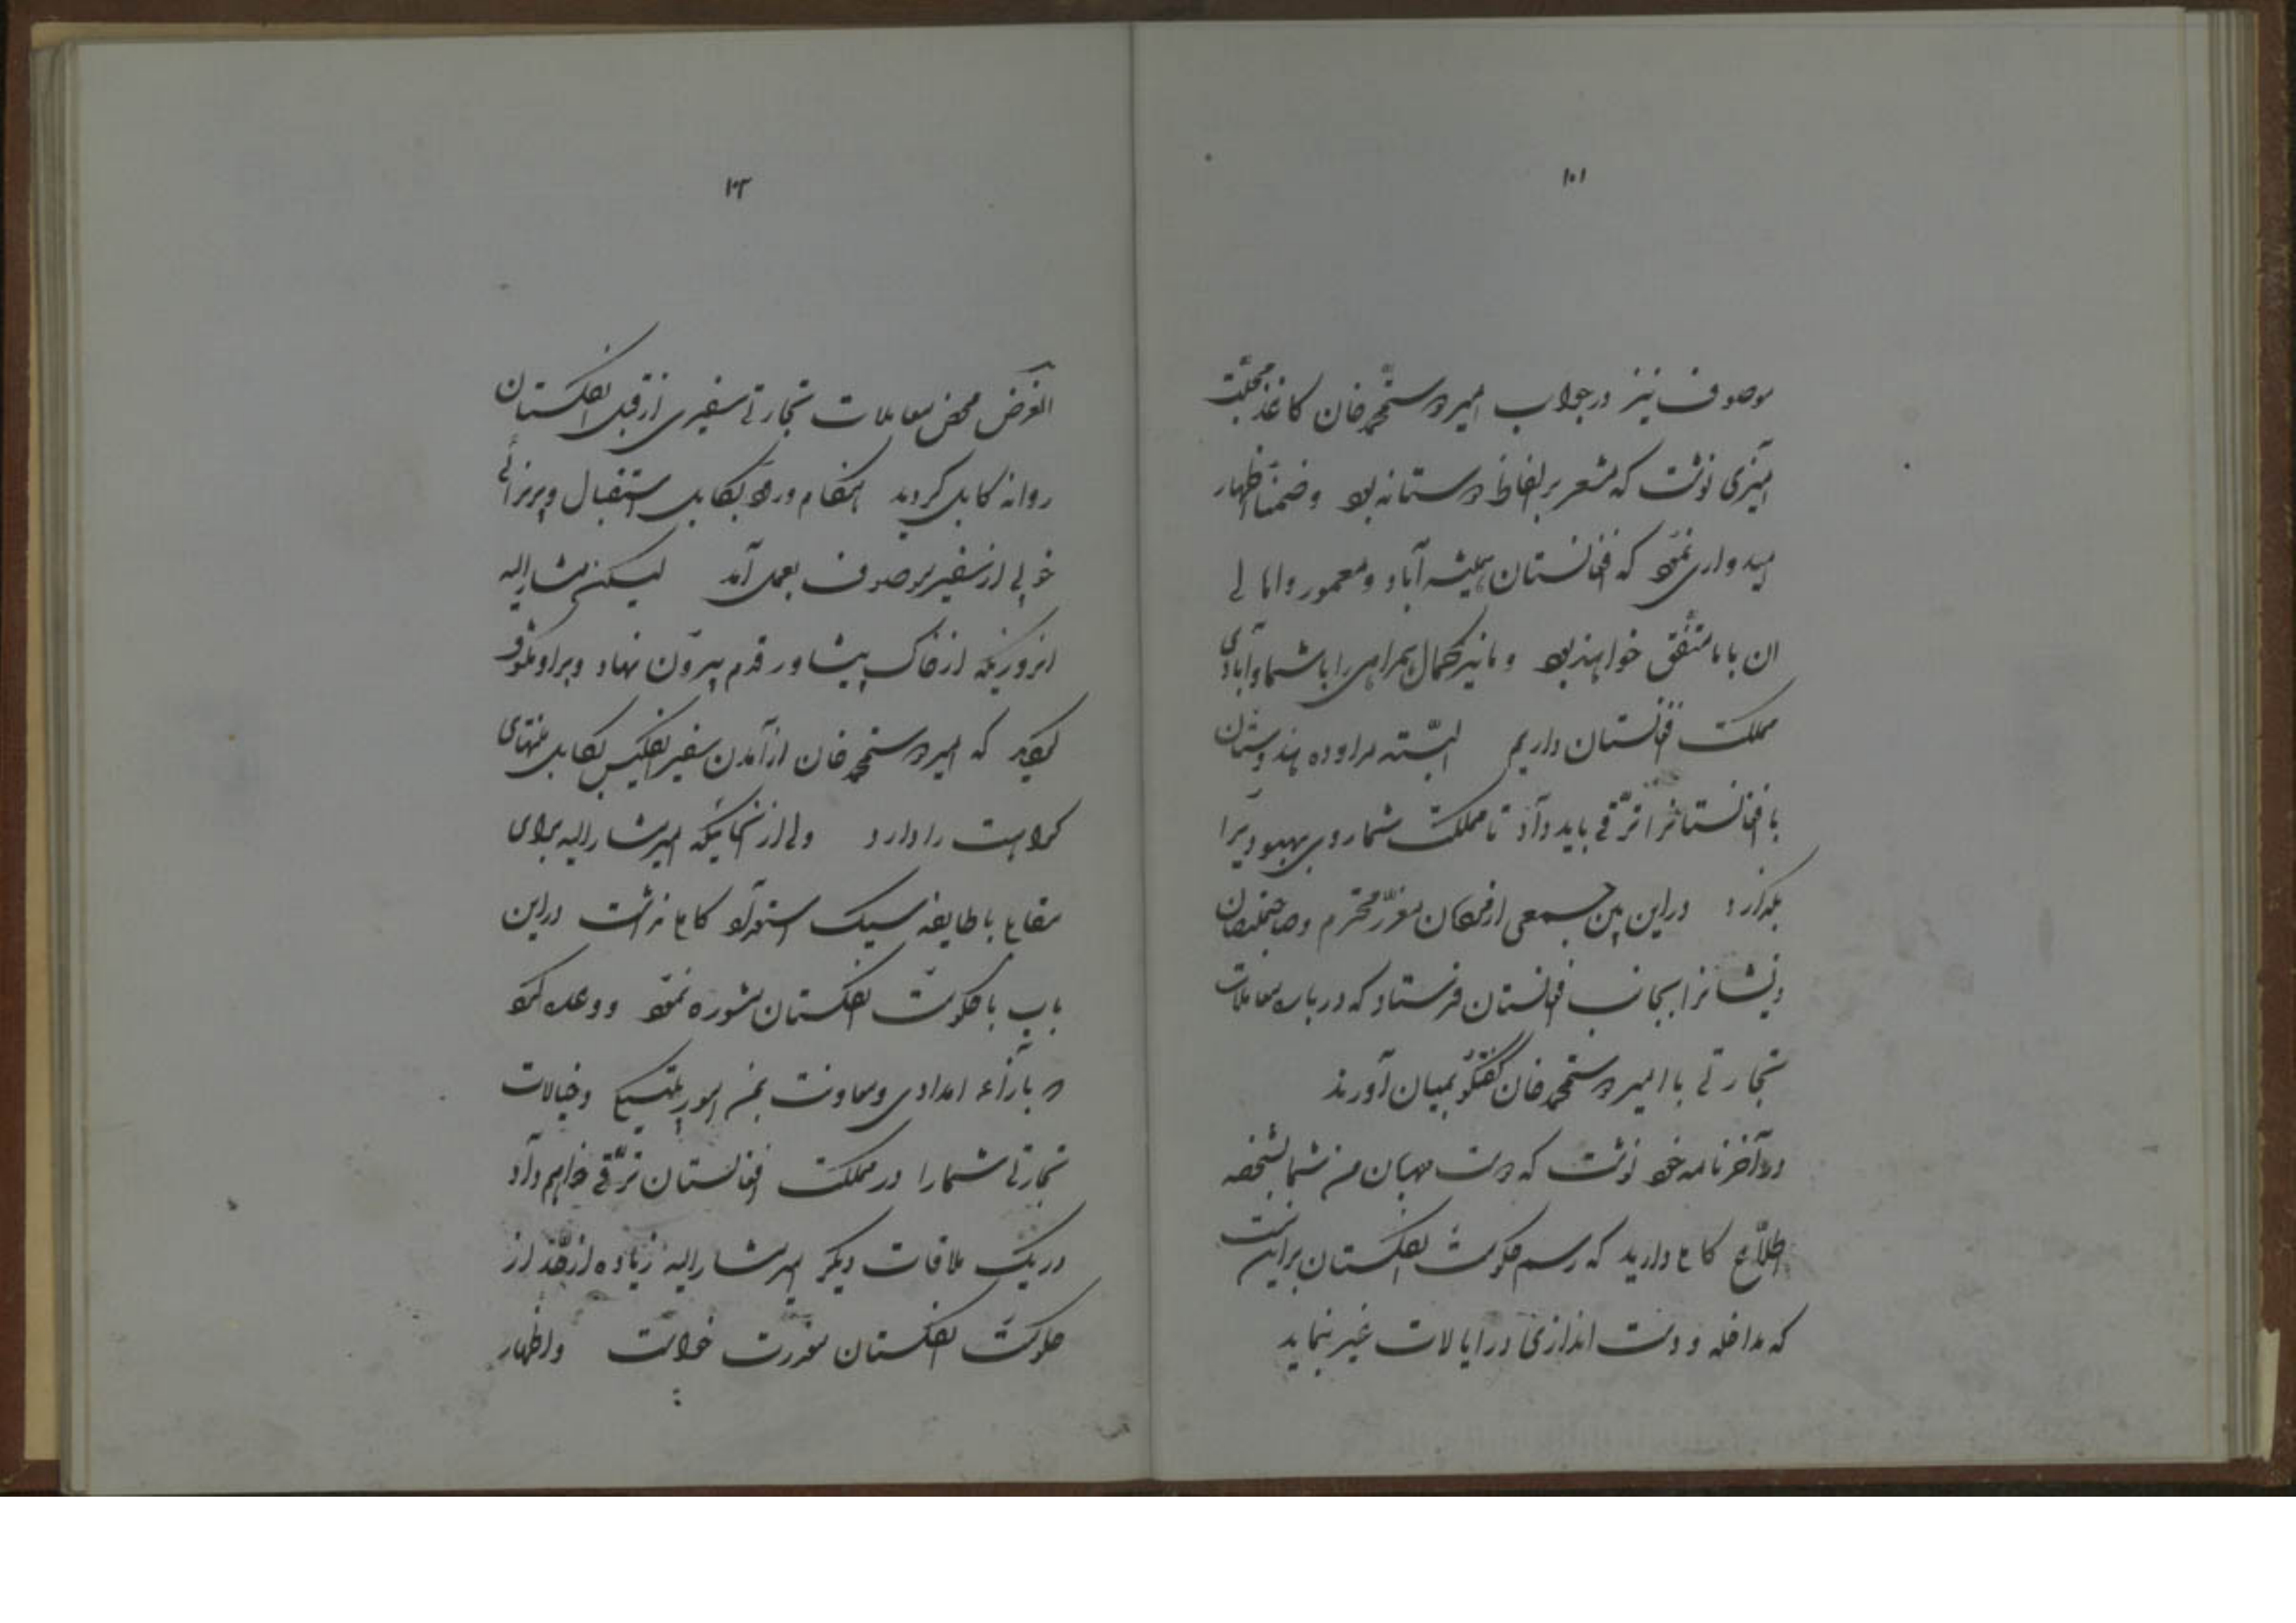 ۱۰۱
موصوف نیز در جواب امیر دوستمحمد خان کاغذ محبّت
آمیزی نوشت که مشعر بر الفاظ دوستانه بود و ضمناً اظهار
امیدواری نمود که افغانستان همیشه آباد و معمور و اهالی
ان با ما متّفق خواهند بود و ما نیز کمال همراهی را با شما و آبادی
مملکت افغانستان داریم البتّه مراوده هندوستان
با افغانستانرا ترّقی باید داد تا مملکت شما روی بهبودیرا
بگذارد و در این بین جمعی از معزّز محترم و صاحبمنصبان
و نیشانرا بجانب افغانستان فرستاد که در باب معاملات
تجارتی با امیر دوستمحمد خان گفتگو بمیان آورند
در آخر نامه خود نوشت که دوست مهربان من شما بشخصه
اطلّاع کامل دارید که رسم حکومت انگلستان بر این است
که مداخله و دست اندازی در ایالات غیر ننماید
۱۰۲
الغرض محض معاملات تجارتی سفیری از قبل انگلستان
روانه کابل گردید هنگام ورود بکابل استقبال و پذیرائی
خوبی از سفیر موصوف بعمل آمد لیکن مشارالیه
از روزیکه از خاک پیشاور قدم بیرون نهاد و بر او مکشوف
گردید که امیر دوستمحمد خان از آمدن سفیر انگلیس بکابل منتهای
کراهت را دارد ولی از آنجائیکه امیر مشارالیه برای
مقابل با طایفه سیک استعداد کامل نداشت در این
باب با حکومت انگلستان مشوره نمود و وعده کرد
در بازآء امدادی و معاونت بمن امور پلتیکی و خیالات
تجارتی شما را در مملکت افغانستان ترّقی خواهم داد
در یک ملاقات دیگر امیر مشارالیه زیاده از حدّ از
حکومت انگلستان معذرت خواست و اظهار